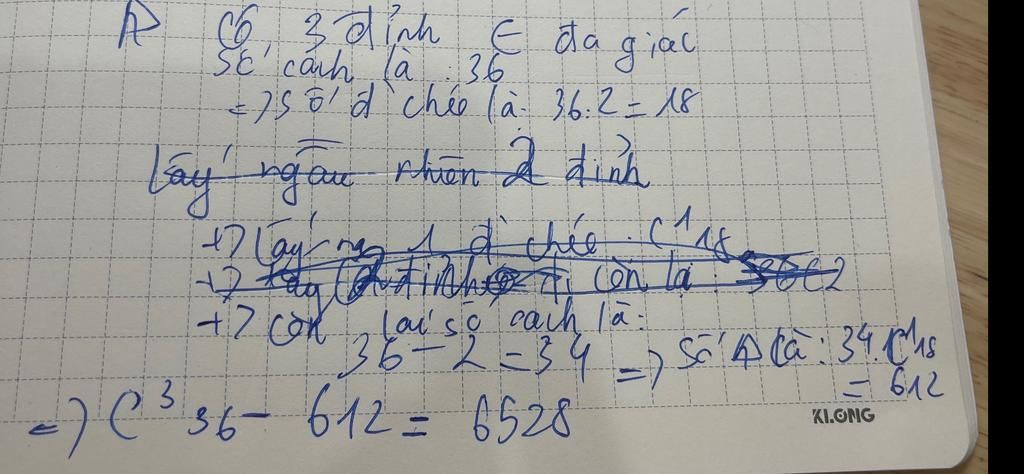 Δ Có 3 đỉnh ∈ đa giác
Số cách là : 36
=> Số đ' chéo là: 36.2 = 18
Lấy ngẫu nhiên 2 đỉnh
+> Lấy ng 1 đ' chéo : C¹18
+> lấy đỉnh đ' còn lại :
+> còn lại số cách là:
36 - 2 = 34 => Số Δ là : 34.C¹18
= 612
=> C³36 - 612 = 6528
KLONG